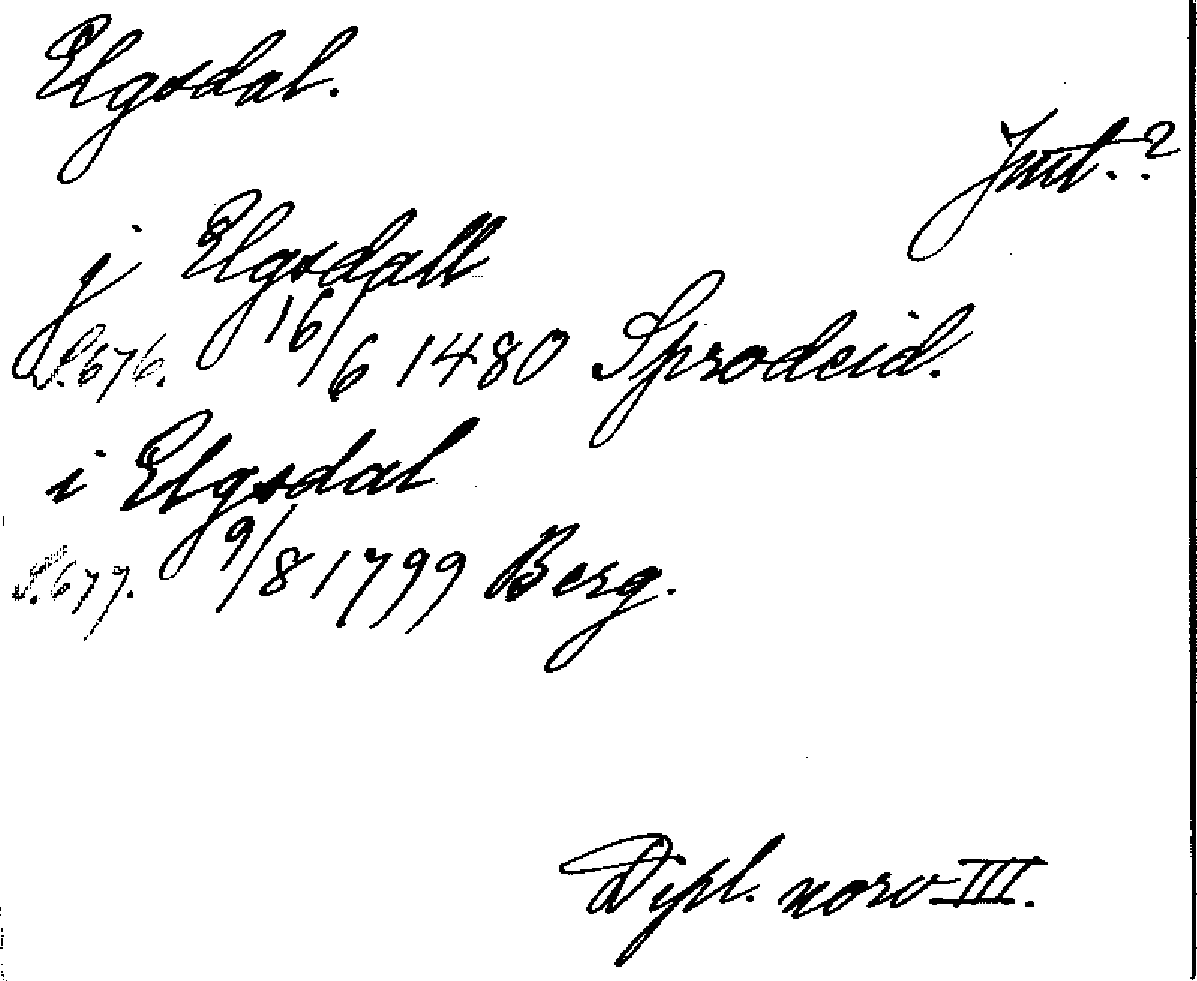 Elgsdal.
Jmt.?
j Elgsdall
S. 676. 16/6 1480 Sprodeid.
i Elgsdal
S. 677. 9/8 1799 Berg.
Dipl. norv III.